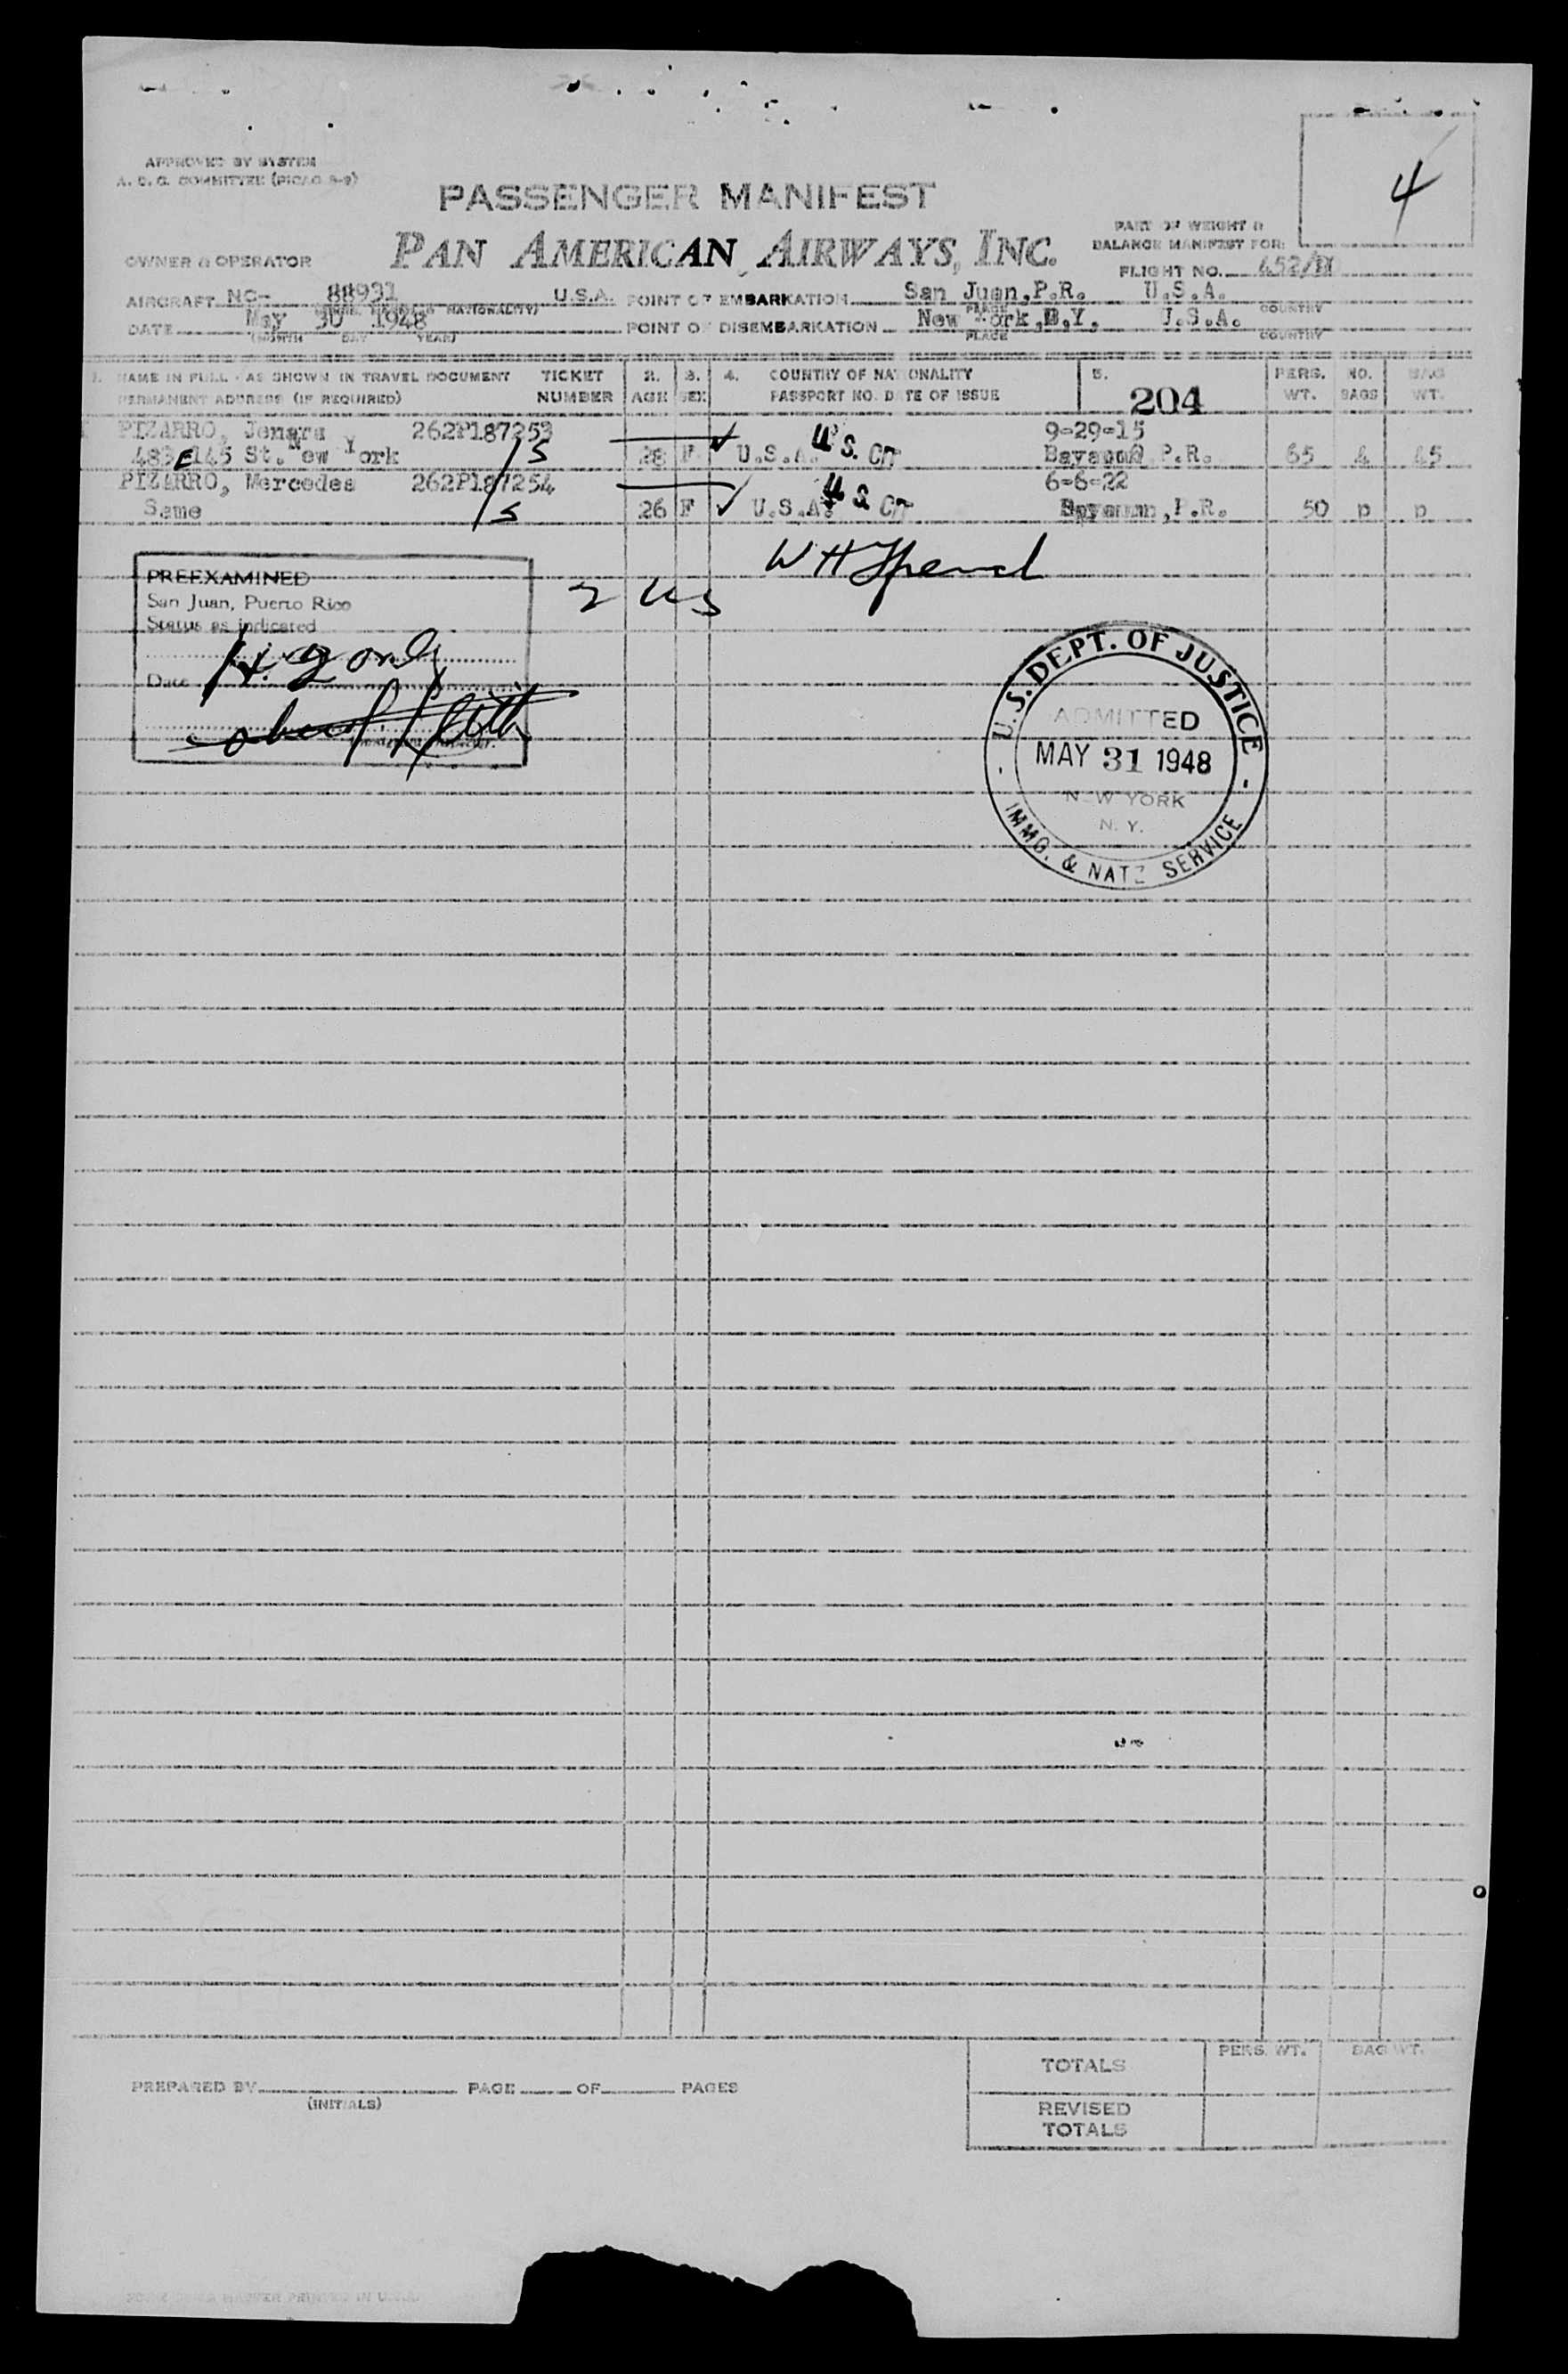 4
APPROVED BY SYSTEM
A. C. G. COMMITTEE (PICAO 8-9)
PASSENGER MANIFEST
PAN AMERICAN AIRWAYS, INC.
PART OF WEIGHT &
BALANCE MANIFEST FOR:
OWNER & OPERATOR
FLIGHT NO. 452/
AIRCRAFT NC- 88931 U.S.A. POINT OF EMBARKATION San Juan,P.R. U.S.A.
NATIONALITY) PLACE COUNTRY
DATE May 30 1948 POINT OF DISEMBARKATION New York,N.Y. U.S.A.
(MONTH DAY YEAR) PLACE COUNTRY
1. NAME IN FULL - AS SHOWN IN TRAVEL DOCUMENT TICKET 2. 3. 4. COUNTRY OF NATIONALITY 5. PERS. NO. BAG
PERMANENT ADDRESS (IF REQUIRED) NUMBER AGE SEX PASSPORT NO. DATE OF ISSUE 204 WT. BAGS WT.
PIZARRO, Jenara 262P187253 9-29-15
483 E 145 St. New York /S 28 F ✓ U.S.A. U.S. Cit Bayamon P.R. 65 4 45
PIZARRO, Mercedes 262P187254 6-6-22
Same /S 26 F ✓ U.S.A. U.S. Cit Bayamon,P.R. 50 p p
PREEXAMINED
San Juan, Puerto Rico
Status as indicated
only
Date
2 US
W H
U.S. DEPT. OF JUSTICE
ADMITTED
MAY 31 1948
NEW YORK
N. Y.
IMMG. & NATZ SERVICE
TOTALS PERS. WT. BAG WT.
PREPARED BY PAGE OF PAGES
(INITIALS)
REVISED
TOTALS